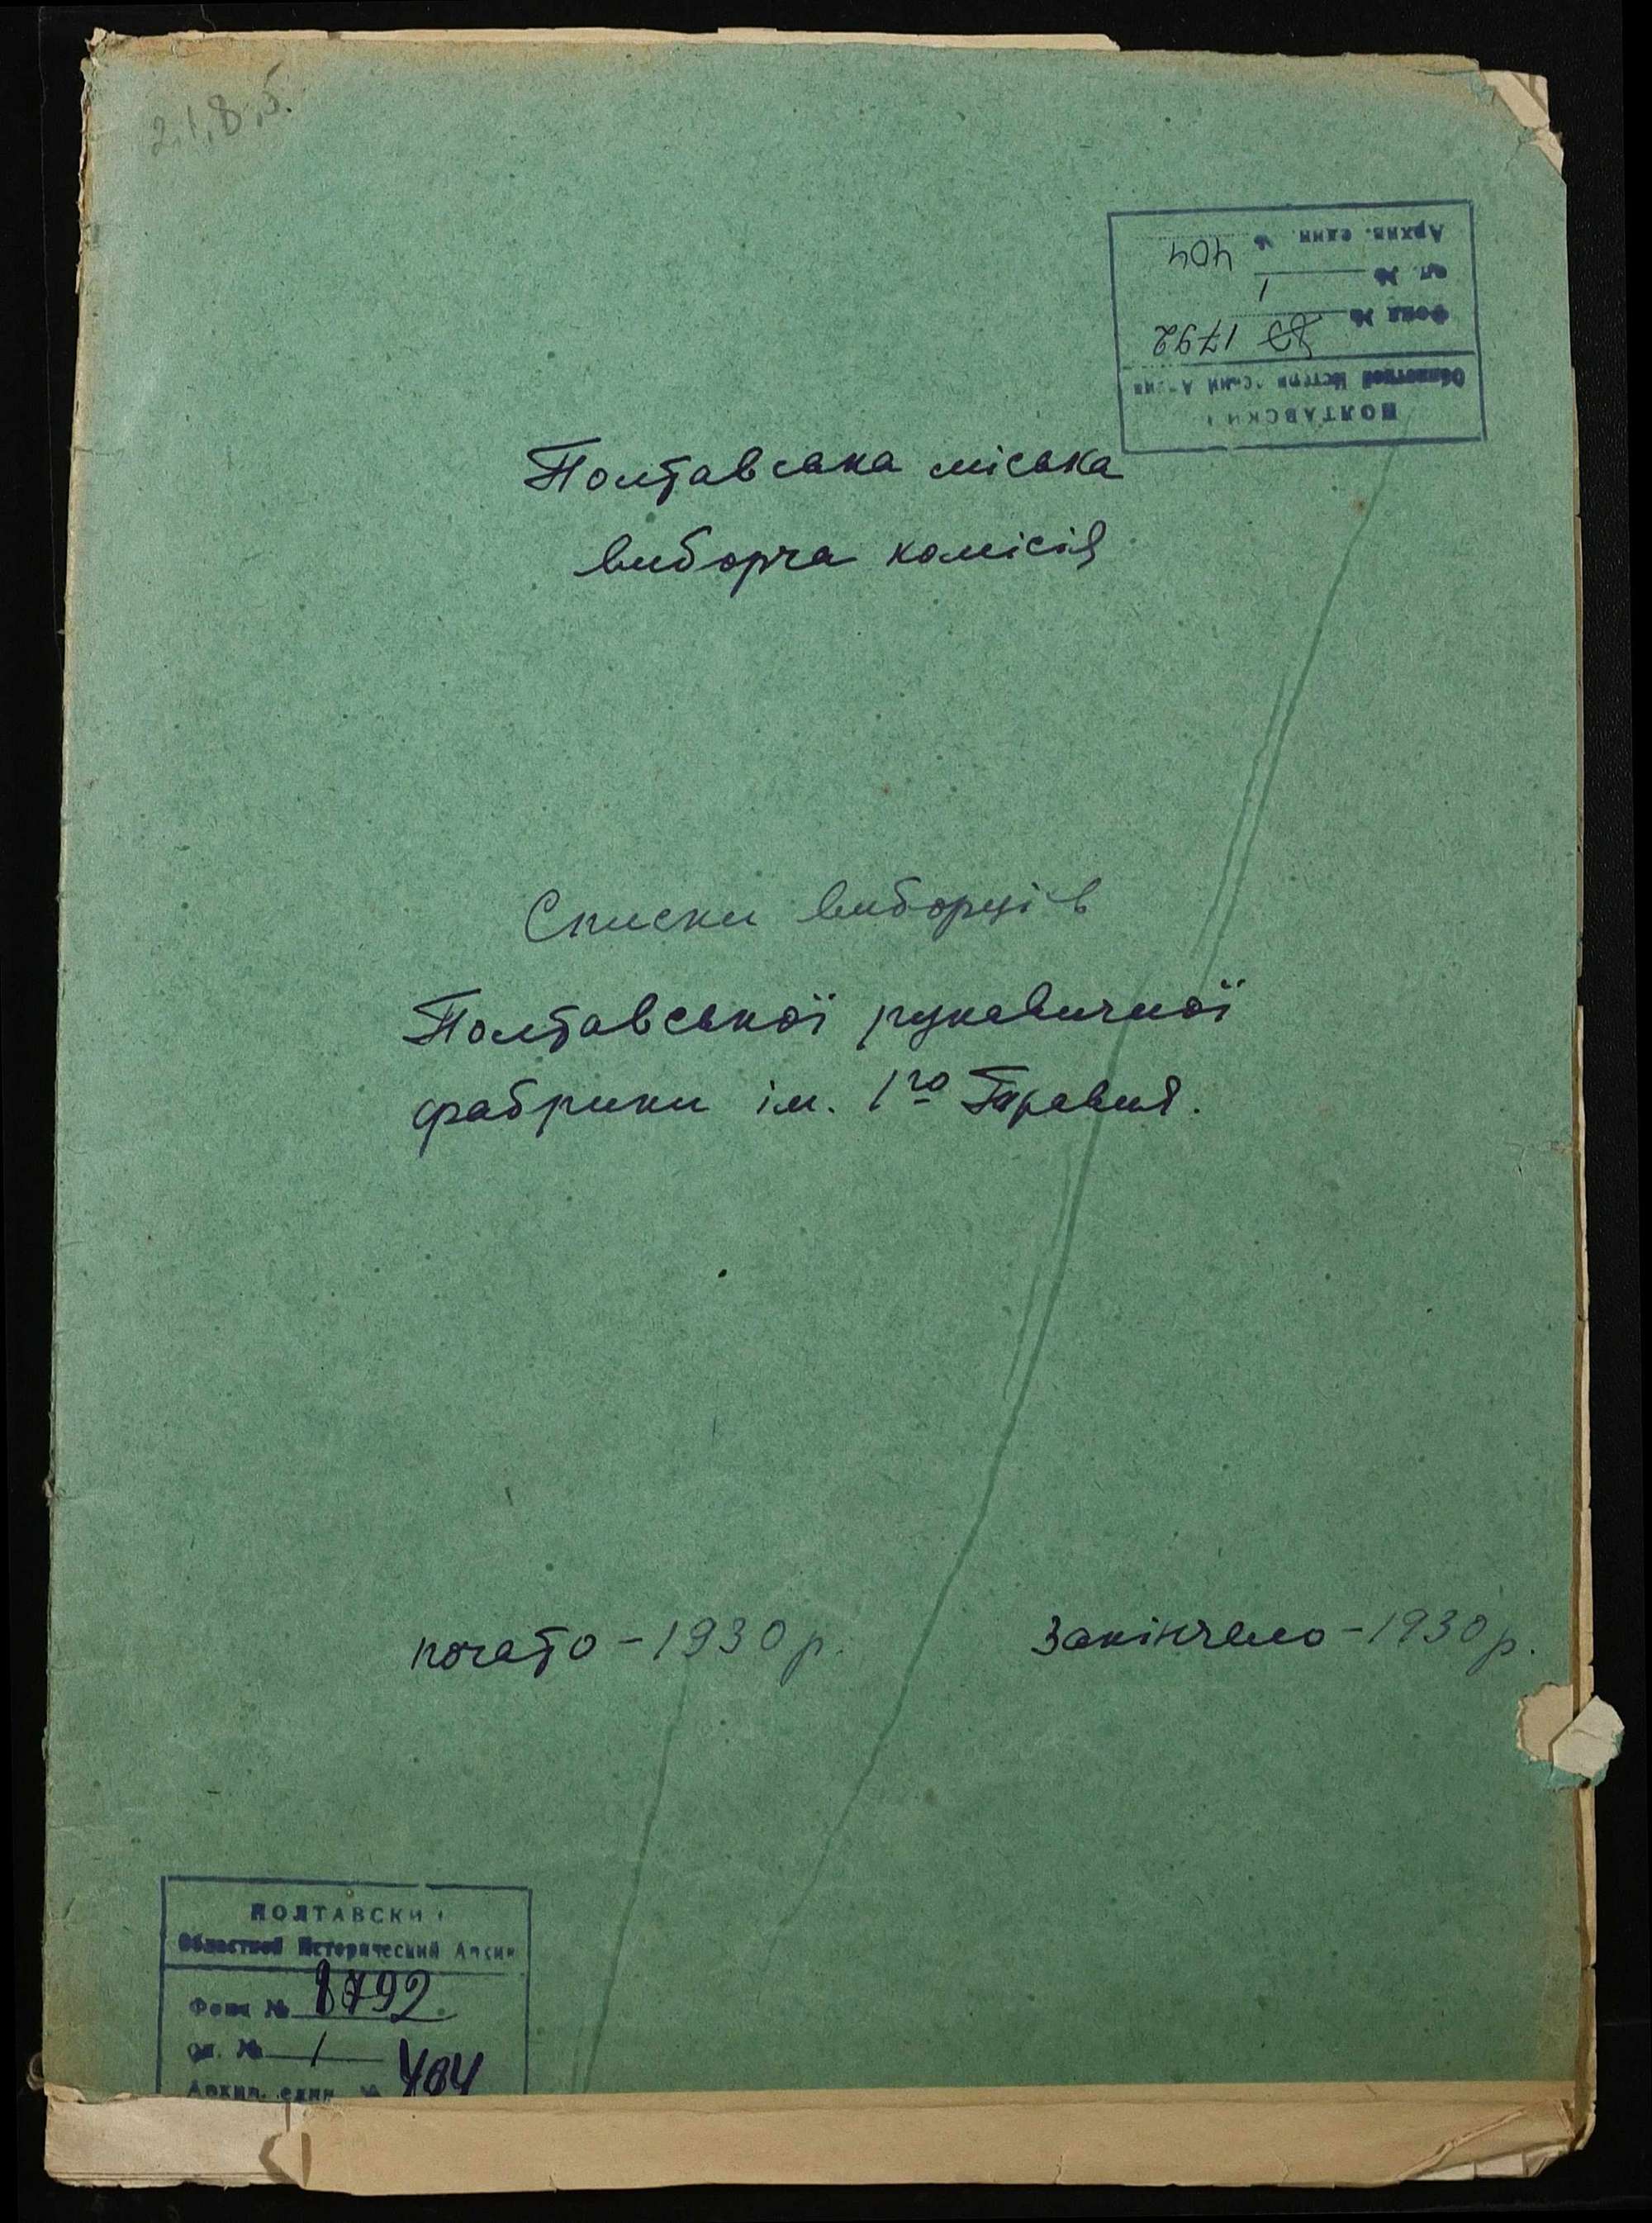 2,1,8,5.
Архив. един. № 404
оп. № 1
Фонд № 1792
Областной Исторический Архив
ПОЛТАВСКИЙ
Полтавська міська
виборча комісія
Списки виборців
Полтавської рукавичної
фабрики ім. 1го Травня.
почато – 1930 р. закінчено – 1930 р.
ПОЛТАВСКИЙ
Областной Исторический Архив
Фонд № 1792
оп. № 1
Архив. един. № 404